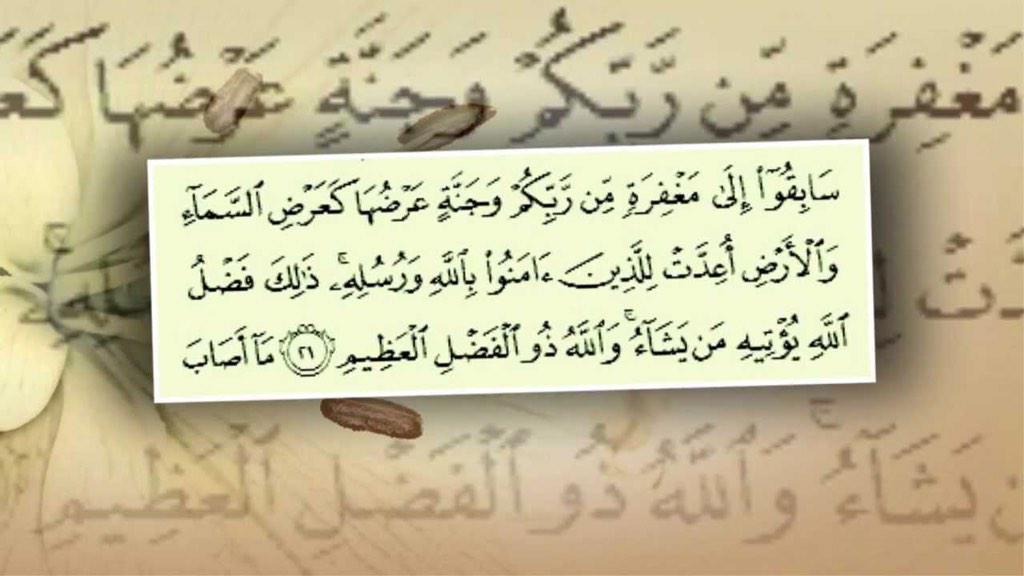 مَغْفِرَةٍ مِّن رَّبِّكُمْ وَجَنَّةٍ عَرْضُهَا
سَابِقُوٓا۟ إِلَىٰ مَغْفِرَةٍ مِّن رَّبِّكُمْ وَجَنَّةٍ عَرْضُهَا كَعَرْضِ ٱلسَّمَآءِ
وَٱلْأَرْضِ أُعِدَّتْ لِلَّذِينَ ءَامَنُوا۟ بِٱللَّهِ وَرُسُلِهِۦ ۚ ذَٰلِكَ فَضْلُ
ٱللَّهِ يُؤْتِيهِ مَن يَشَآءُ ۚ وَٱللَّهُ ذُو ٱلْفَضْلِ ٱلْعَظِيمِ ٢١ مَآ أَصَابَ
يَشَآءُ ۚ وَٱللَّهُ ذُو ٱلْفَضْلِ ٱلْعَظِيمِ